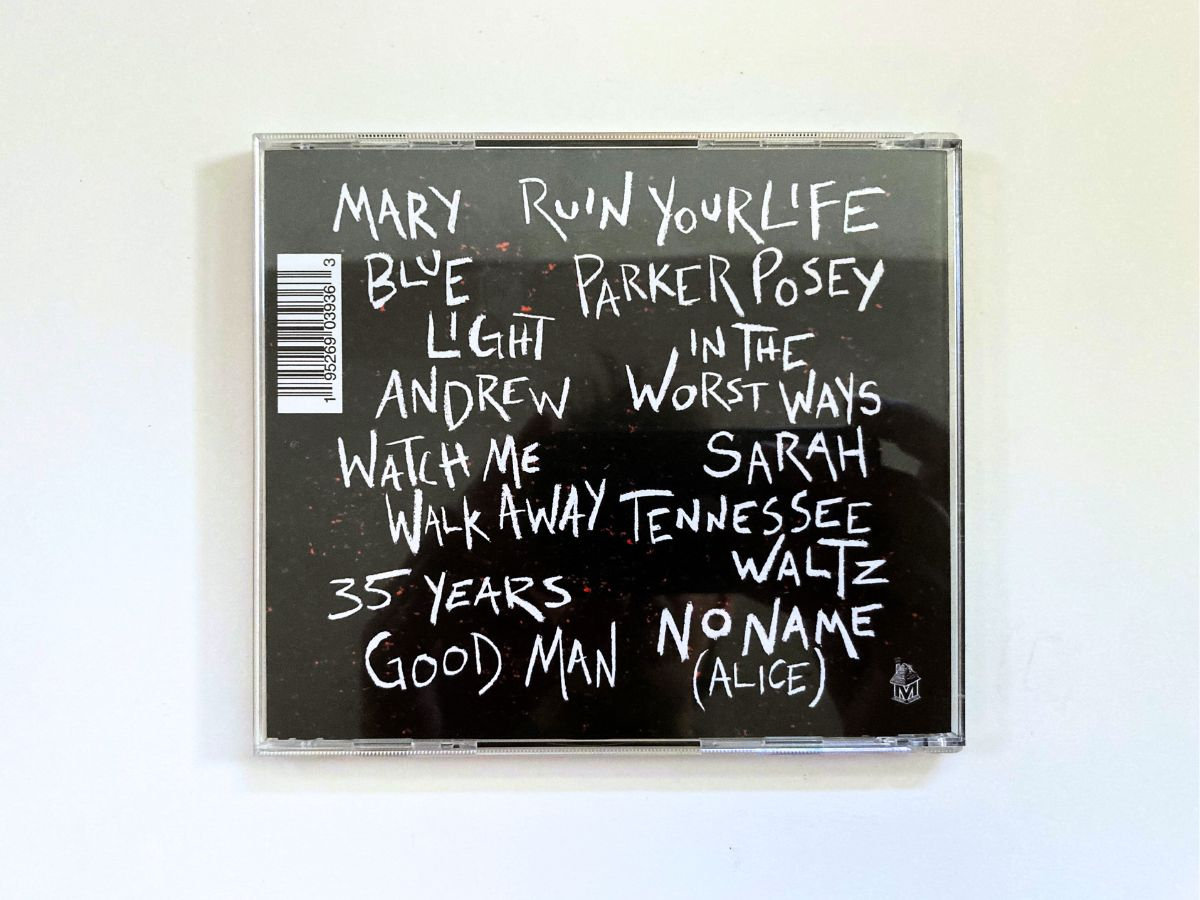 MARY
BLUE
LIGHT
ANDREW
WATCH ME
WALK AWAY
35 YEARS
GOOD MAN
RUIN YOUR LIFE
PARKER POSEY
IN THE
WORST WAYS
SARAH
TENNESSEE
WALTZ
NO NAME
(ALICE)
1 95269 03936 3
M